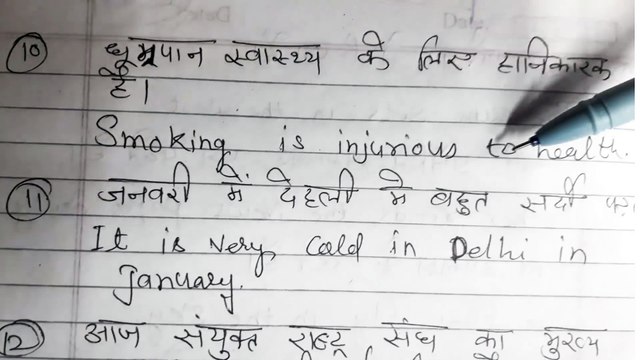 10 धूम्रपान स्वास्थ्य के लिए हानिकारक
है।
Smoking is injurious to health.
11 जनवरी में देहली में बहुत सर्दी
It is very cold in Delhi in
January.
12 आज संयुक्त राष्ट्र संघ का मुख्य